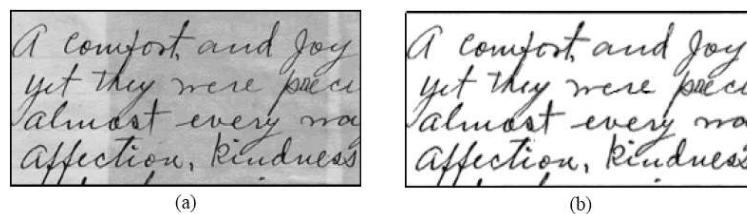 A comfort, and Joy
yet they were preci
almost every wa
affection, kindness
(a)
A comfort, and Joy
yet they were preci
almost every wa
affection, kindness
(b)